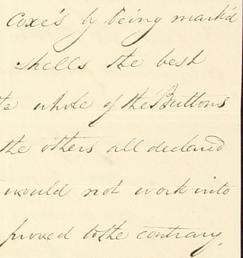 Coxe's by being mark'd
shells the best
whole of the Buttons
the others all declared
would not work into
proved to the contrary.